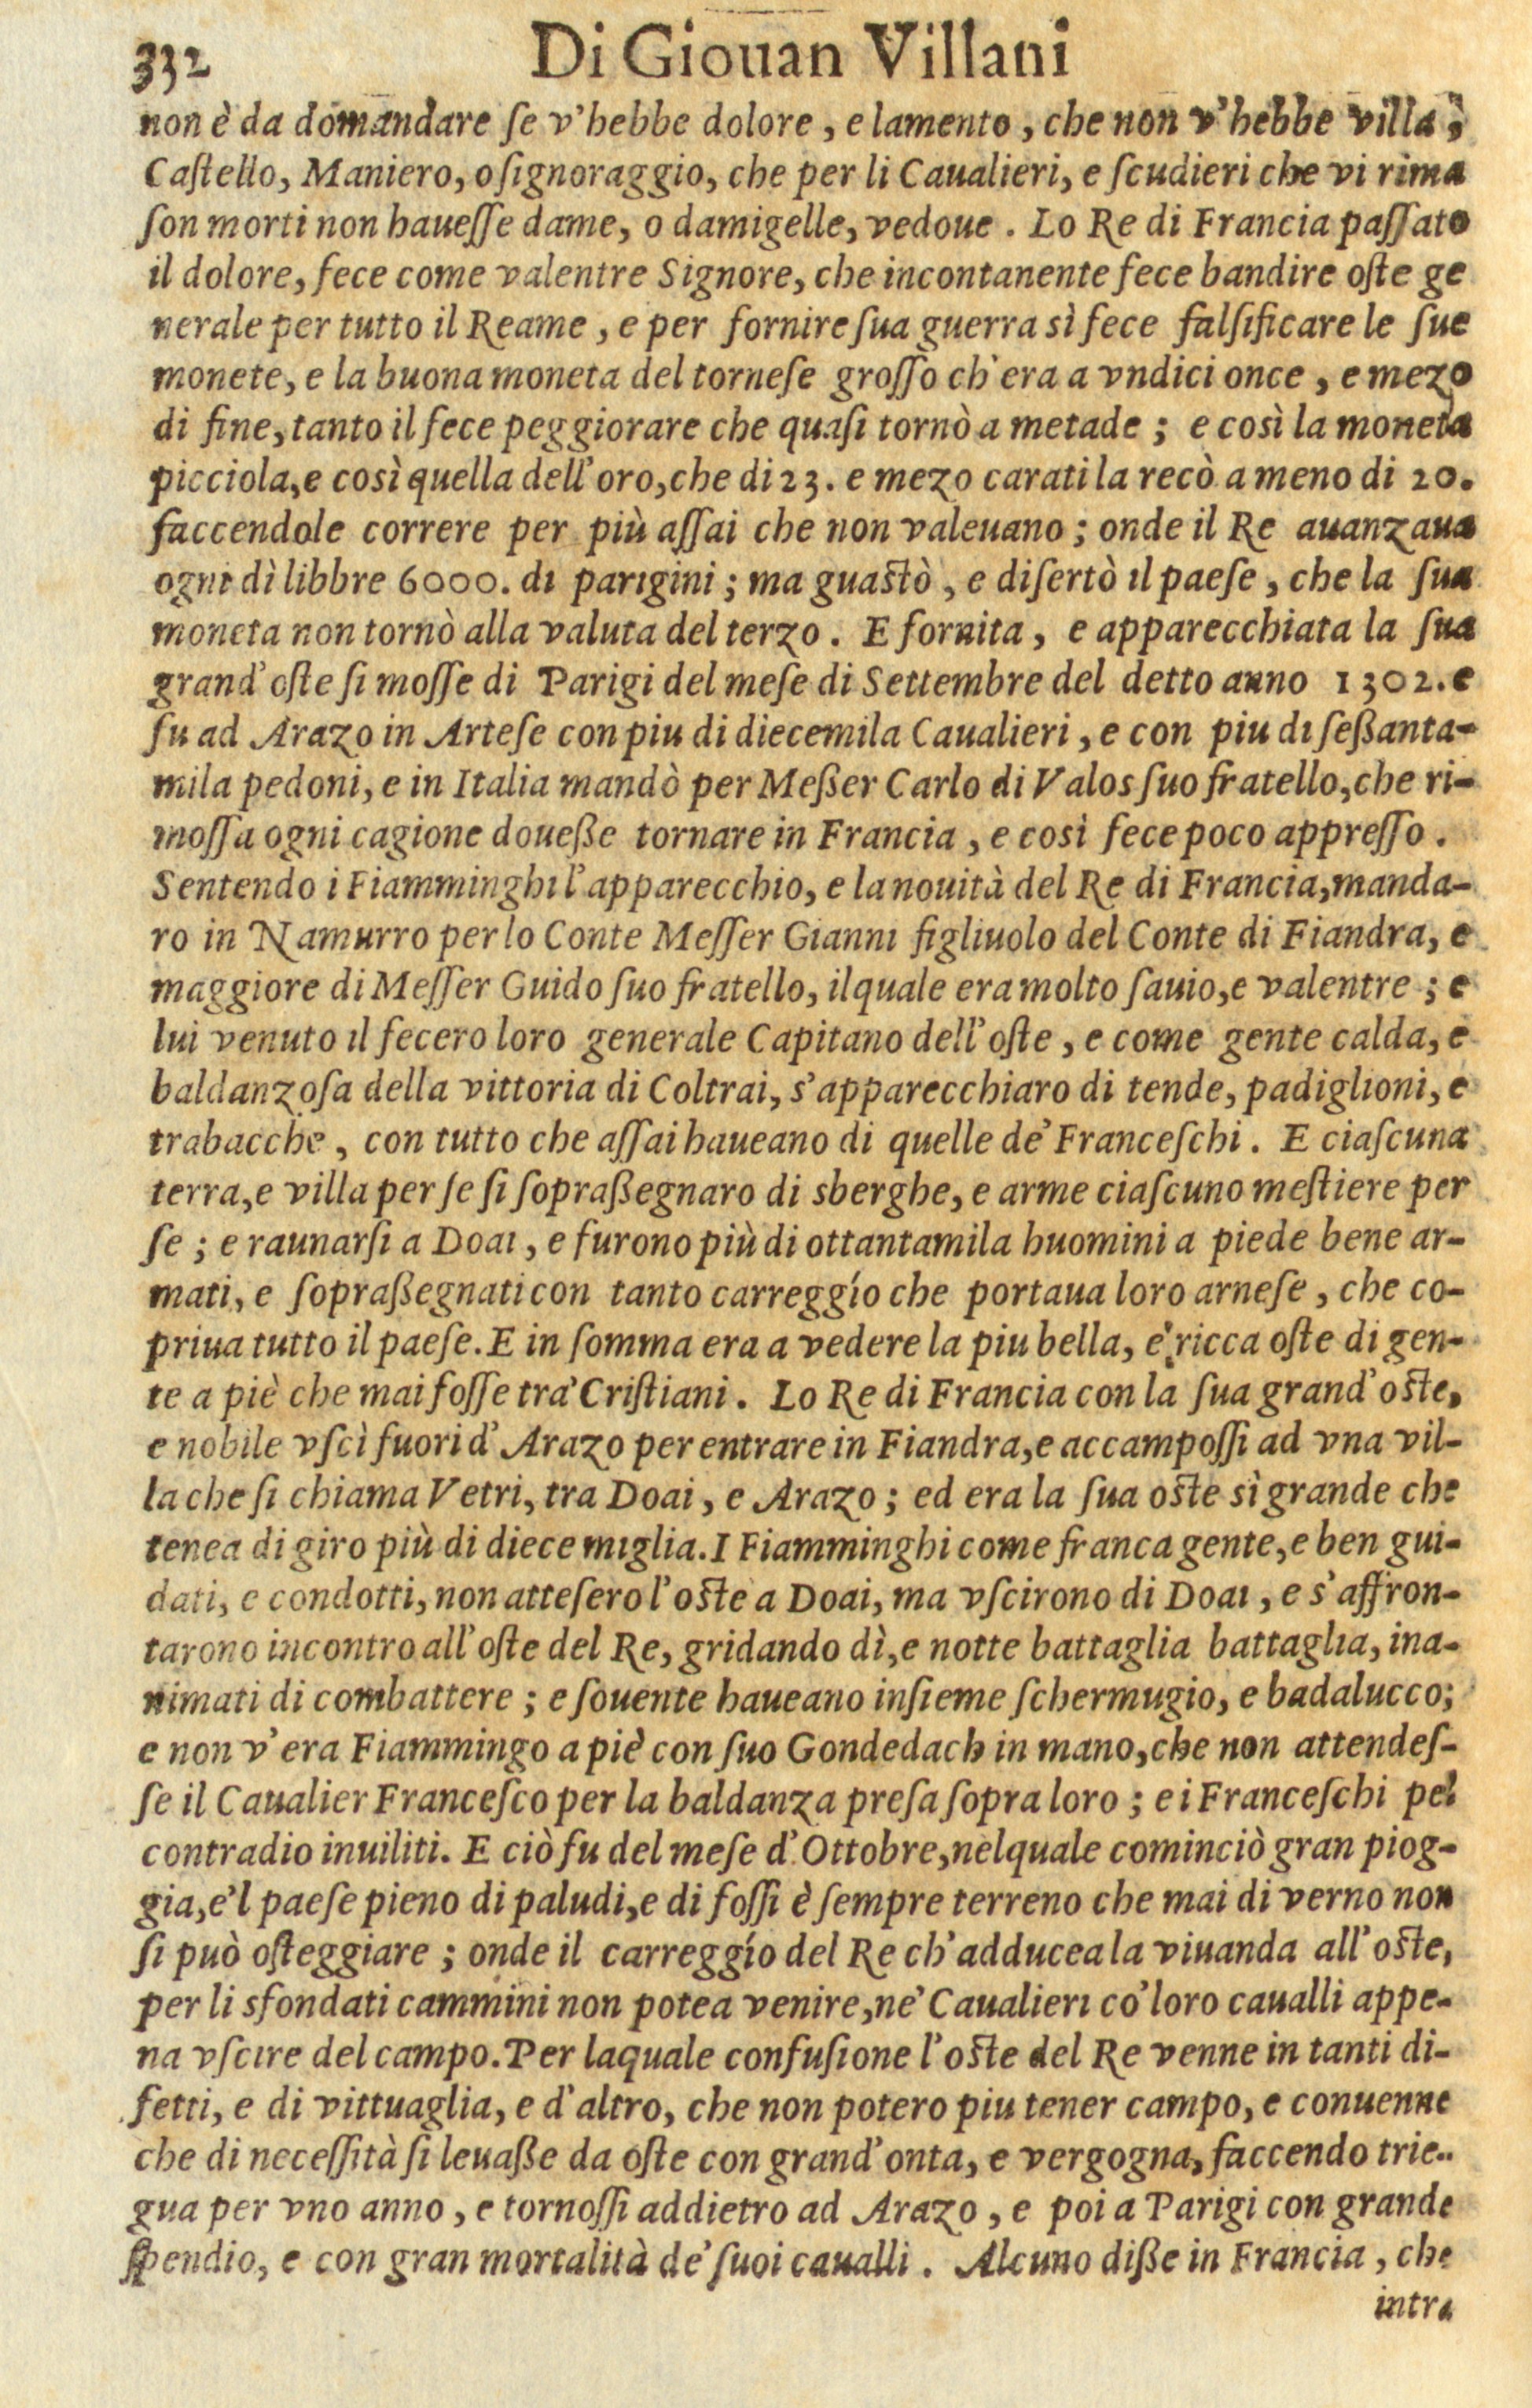 332 Di Giouan Villani
non è da domandare ſe v'hebbe dolore, e lamento, che non v'hebbe villa,
Caſtello, Maniero, o ſignoraggio, che per li Caualieri, e ſcudieri che vi rima
ſon morti non haueſſe dame, o damigelle, vedoue. Lo Re di Francia paſſato
il dolore, fece come valentre Signore, che incontanente fece bandire oſte ge
nerale per tutto il Reame, e per fornire ſua guerra sì fece falſificare le ſue
monete, e la buona moneta del torneſe groſſo ch'era a vndici once, e mezo
di fine, tanto il fece peggiorare che quaſi tornò a metade; e così la moneta
picciola, e così quella dell'oro, che di 23. e mezo carati la recò a meno di 20.
faccendole correre per più aſſai che non valeuano; onde il Re auanzaua
ogni dì libbre 6000. di parigini; ma guaſtò, e diſertò il paeſe, che la ſua
moneta non tornò alla valuta del terzo. E fornita, e apparecchiata la ſua
grand'oſte ſi moſſe di Parigi del meſe di Settembre del detto anno 1302. e
fu ad Arazo in Arteſe con piu di diecemila Caualieri, e con piu di ſeßanta-
mila pedoni, e in Italia mandò per Meßer Carlo di Valos ſuo fratello, che ri-
moſſa ogni cagione doueße tornare in Francia, e così fece poco appreſſo.
Sentendo i Fiamminghi l'apparecchio, e la nouità del Re di Francia, manda-
ro in Namurro per lo Conte Meſſer Gianni figliuolo del Conte di Fiandra, e
maggiore di Meſſer Guido ſuo fratello, ilquale era molto ſauio, e valentre; e
lui venuto il fecero loro generale Capitano dell'oſte, e come gente calda, e
baldanzoſa della vittoria di Coltrai, s'apparecchiaro di tende, padiglioni, e
trabacche, con tutto che aſſai haueano di quelle de' Franceſchi. E ciaſcuna
terra, e villa per ſe ſi ſopraßegnaro di sberghe, e arme ciaſcuno meſtiere per
ſe; e raunarſi a Doai, e furono più di ottantamila huomini a piede bene ar-
mati, e ſopraßegnati con tanto carreggío che portaua loro arneſe, che co-
priua tutto il paeſe. E in ſomma era a vedere la piu bella, e ricca oſte di gen-
te a piè che mai foſſe tra' Criſtiani. Lo Re di Francia con la ſua grand'oſte,
e nobile vſcì fuori d'Arazo per entrare in Fiandra, e accampoſſi ad vna vil-
la che ſi chiama Vetri, tra Doai, e Arazo; ed era la ſua oſte sì grande che
tenea di giro più di diece miglia. I Fiamminghi come franca gente, e ben gui-
dati, e condotti, non atteſero l'oſte a Doai, ma vſcirono di Doai, e s'affron-
tarono incontro all'oſte del Re, gridando dì, e notte battaglia battaglia, ina-
nimati di combattere; e ſouente haueano inſieme ſchermugio, e badalucco;
e non v'era Fiammingo a piè con ſuo Gondedach in mano, che non attendeſ-
ſe il Caualier Franceſco per la baldanza preſa ſopra loro; e i Franceſchi pel
contradio inuiliti. E ciò fu del meſe d'Ottobre, nelquale cominciò gran piog-
gia, e'l paeſe pieno di paludi, e di foſſi è ſempre terreno che mai di verno non
ſi può oſteggiare; onde il carreggío del Re ch'adducea la viuanda all'oſte,
per li sfondati cammini non potea venire, ne' Caualieri co' loro caualli appe-
na vſcire del campo. Per laquale confuſione l'oſte del Re venne in tanti di-
fetti, e di vittuaglia, e d'altro, che non potero piu tener campo, e conuenne
che di neceſſità ſi leuaße da oſte con grand'onta, e vergogna, faccendo trie-
gua per vno anno, e tornoſſi addietro ad Arazo, e poi a Parigi con grande
ſpendio, e con gran mortalità de' ſuoi caualli. Alcuno diße in Francia, che
intra